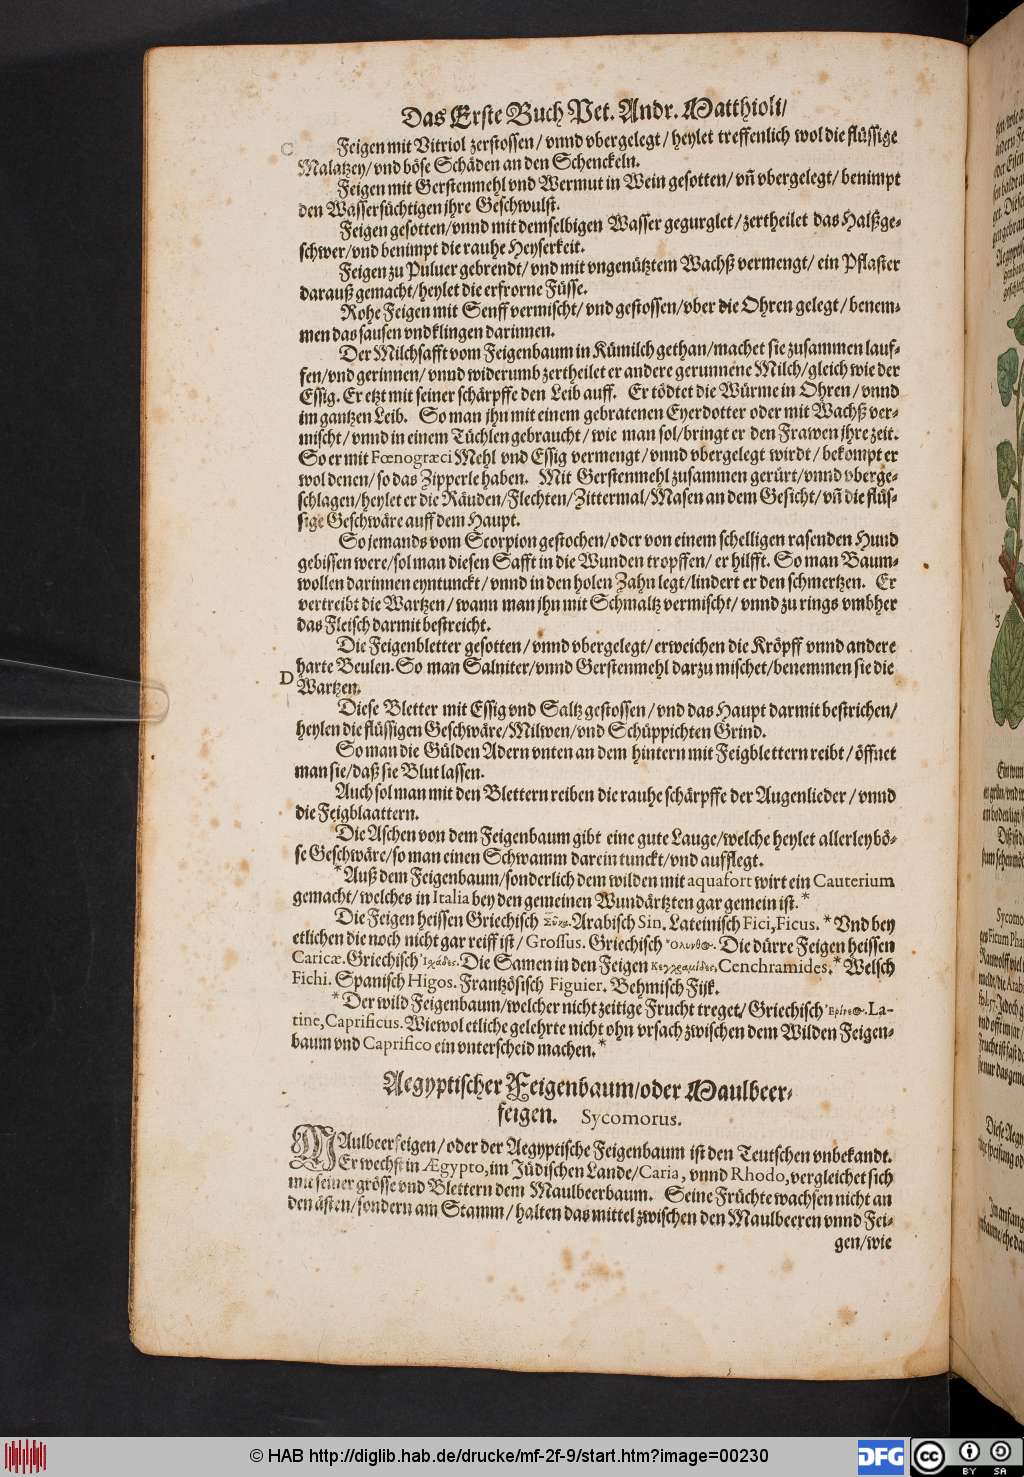 Das Erste Buch Pet. Andr. Matthioli/
C
Feigen mit Vitriol zerstossen/ vnnd vbergelegt/ heylet treffenlich wol die flüssige
Malatzey/ vnd böse Schäden an den Schenckeln.
Feigen mit Gerstenmehl vnd Wermut in Wein gesotten/ vn̄ vbergelegt/ benimpt
den Wassersüchtigen jhre Geschwulst.
Feigen gesotten/ vnnd mit demselbigen Wasser gegurglet/ zertheilet das Halßge-
schwer/ vnd benimpt die rauhe Heyserkeit.
Feigen zu Puluer gebrendt/ vnd mit vngenütztem Wachß vermengt/ ein Pflaster
darauß gemacht/ heylet die erfrorne Füsse.
Rohe Feigen mit Senff vermischt/ vnd gestossen/ vber die Ohren gelegt/ benem-
men das sausen vnd klingen darinnen.
Der Milchsafft vom Feigenbaum in Kümilch gethan/ machet sie zusammen lauf-
fen/ vnd gerinnen/ vnnd widerumb zertheilet er andere gerunnene Milch/ gleich wie der
Essig. Er etzt mit seiner schärpffe den Leib auff. Er tödtet die Würme in Ohren/ vnnd
im gantzen Leib. So man jhn mit einem gebratenen Eyerdotter oder mit Wachß ver-
mischt/ vnnd in einem Tüchlen gebraucht/ wie man sol/ bringt er den Frawen jhre zeit.
So er mit Fœnogræci Mehl vnd Essig vermengt/ vnnd vbergelegt wirdt/ bekompt er
wol denen/ so das Zipperle haben. Mit Gerstenmehl zusammen gerürt/ vnnd vberge-
schlagen/ heylet er die Räuden/ Flechten/ Zittermal/ Masen an dem Gesicht/ vn̄ die flüs-
sige Geschwäre auff dem Haupt.
So jemands vom Scorpion gestochen/ oder von einem schelligen rasenden Hund
gebissen were/ sol man diesen Safft in die Wunden tropffen/ er hilfft. So man Baum-
wollen darinnen eyntunckt/ vnnd in den holen Zahn legt/ lindert er den schmertzen. Er
vertreibt die Wartzen/ wann man jhn mit Schmaltz vermischt/ vnnd zu rings vmbher
das Fleisch darmit bestreicht.
Die Feigenbletter gesotten/ vnnd vbergelegt/ erweichen die Kröpff vnnd andere
harte Beulen. So man Salniter/ vnnd Gerstenmehl darzu mischet/ benemmen sie die
D
Wartzen.
Diese Bletter mit Essig vnd Saltz gestossen/ vnd das Haupt darmit bestrichen/
heylen die flüssigen Geschwäre/ Milwen/ vnd Schüppichten Grind.
So man die Gülden Adern vnten an dem hintern mit Feigblettern reibt/ öffnet
man sie/ daß sie Blut lassen.
Auch sol man mit den Blettern reiben die rauhe schärpffe der Augenlieder/ vnnd
die Feigblaattern.
Die Aschen von dem Feigenbaum gibt eine gute Lauge/ welche heylet allerley bö-
se Geschwäre/ so man einen Schwamm darein tunckt/ vnd aufflegt.
*Auß dem Feigenbaum/ sonderlich dem wilden mit aquafort wirt ein Cauterium
gemacht/ welches in Italia bey den gemeinen Wundärtzten gar gemein ist.*
Die Feigen heissen Griechisch Σῦκα. Arabisch Sin. Lateinisch Fici, Ficus. *Vnd bey
etlichen die noch nicht gar reiff ist/ Grossus. Griechisch Ὄλυνθος. Die dürre Feigen heissen
Caricæ. Griechisch Ἰχάδες. Die Samen in den Feigen Κεγχραμίδες, Cenchramides.* Welsch
Fichi. Spanisch Higos. Frantzösisch Figuier. Behmisch Fijk.
*Der wild Feigenbaum/ welcher nicht zeitige Frucht treget/ Griechisch Ἐρίνεος. La-
tine, Caprificus. Wiewol etliche gelehrte nicht ohn vrsach zwischen dem Wilden Feigen-
baum vnd Caprifico ein vnterscheid machen.*
Aegyptischer Feigenbaum/ oder Maulbeer-
feigen. Sycomorus.
MAulbeerfeigen/ oder der Aegyptische Feigenbaum ist den Teutschen vnbekandt.
Er wechst in Ægypto, im Jüdischen Lande/ Caria, vnnd Rhodo, vergleichet sich
mit seiner grösse vnd Blettern dem Maulbeerbaum. Seine Früchte wachsen nicht an
den ästen/ sondern am Stamm/ halten das mittel zwischen den Maulbeeren vnnd Fei-
gen/ wie
© HAB http://diglib.hab.de/drucke/mf-2f-9/start.htm?image=00230
DFG
cc
BY SA